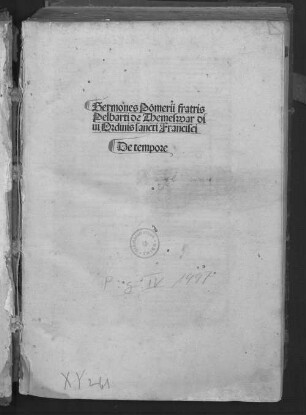 Sermones Pomerij fratris
Pelbarti de Themeswar di
ui Ordinis sancti Francisci
De tempore
P. g IV 1491
XY 241